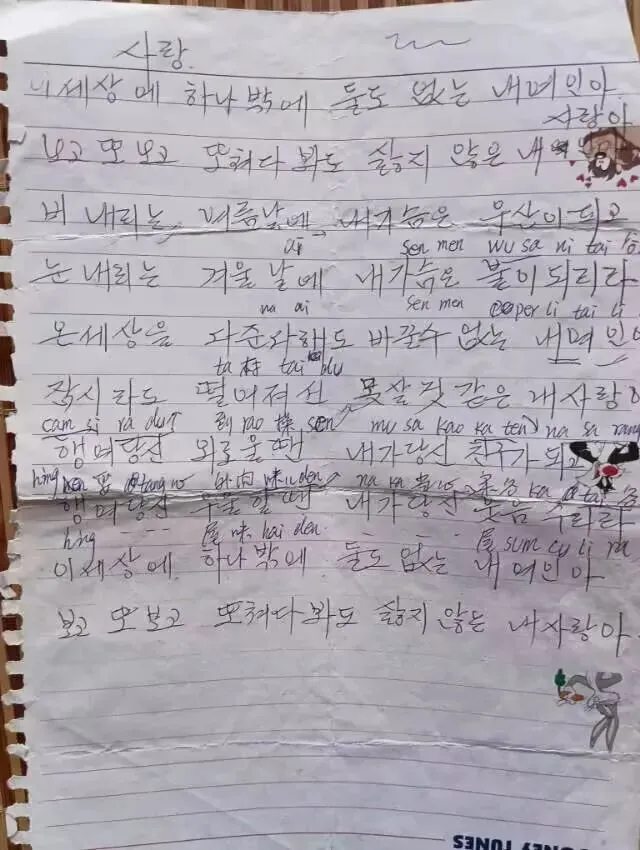 사랑
이세상에 하나밖에 둘도 없는 내여인아
사랑아
보고 또 보고 또 쳐다봐도 싫지 않은 내
비 내리는 여름날에 내가슴은 우산이 되고
ai sen men wu sa ni tai
눈 내리는 겨울 날에 내가슴은 불이 되리라
na ai sen men per li tai li
온세상을 다준다해도 바꿀수 없는 내여인
ta tai du
잠시라도 떨어져선 못살것 같은 내사랑
cam si ra du rao sen mu sa kao ka ten na sa rang
행여당신 외로울땐 내가당신 친구가 되고
hing tang den na ka ka tai
행여당신 우울할때 내가당신 웃음주리라
hing hai den sum cu li ra
이세상에 하나밖에 둘도 없는 내여인아
보고 또 보고 또쳐다봐도 싫지 않은 내사랑아
LOONEY TUNES